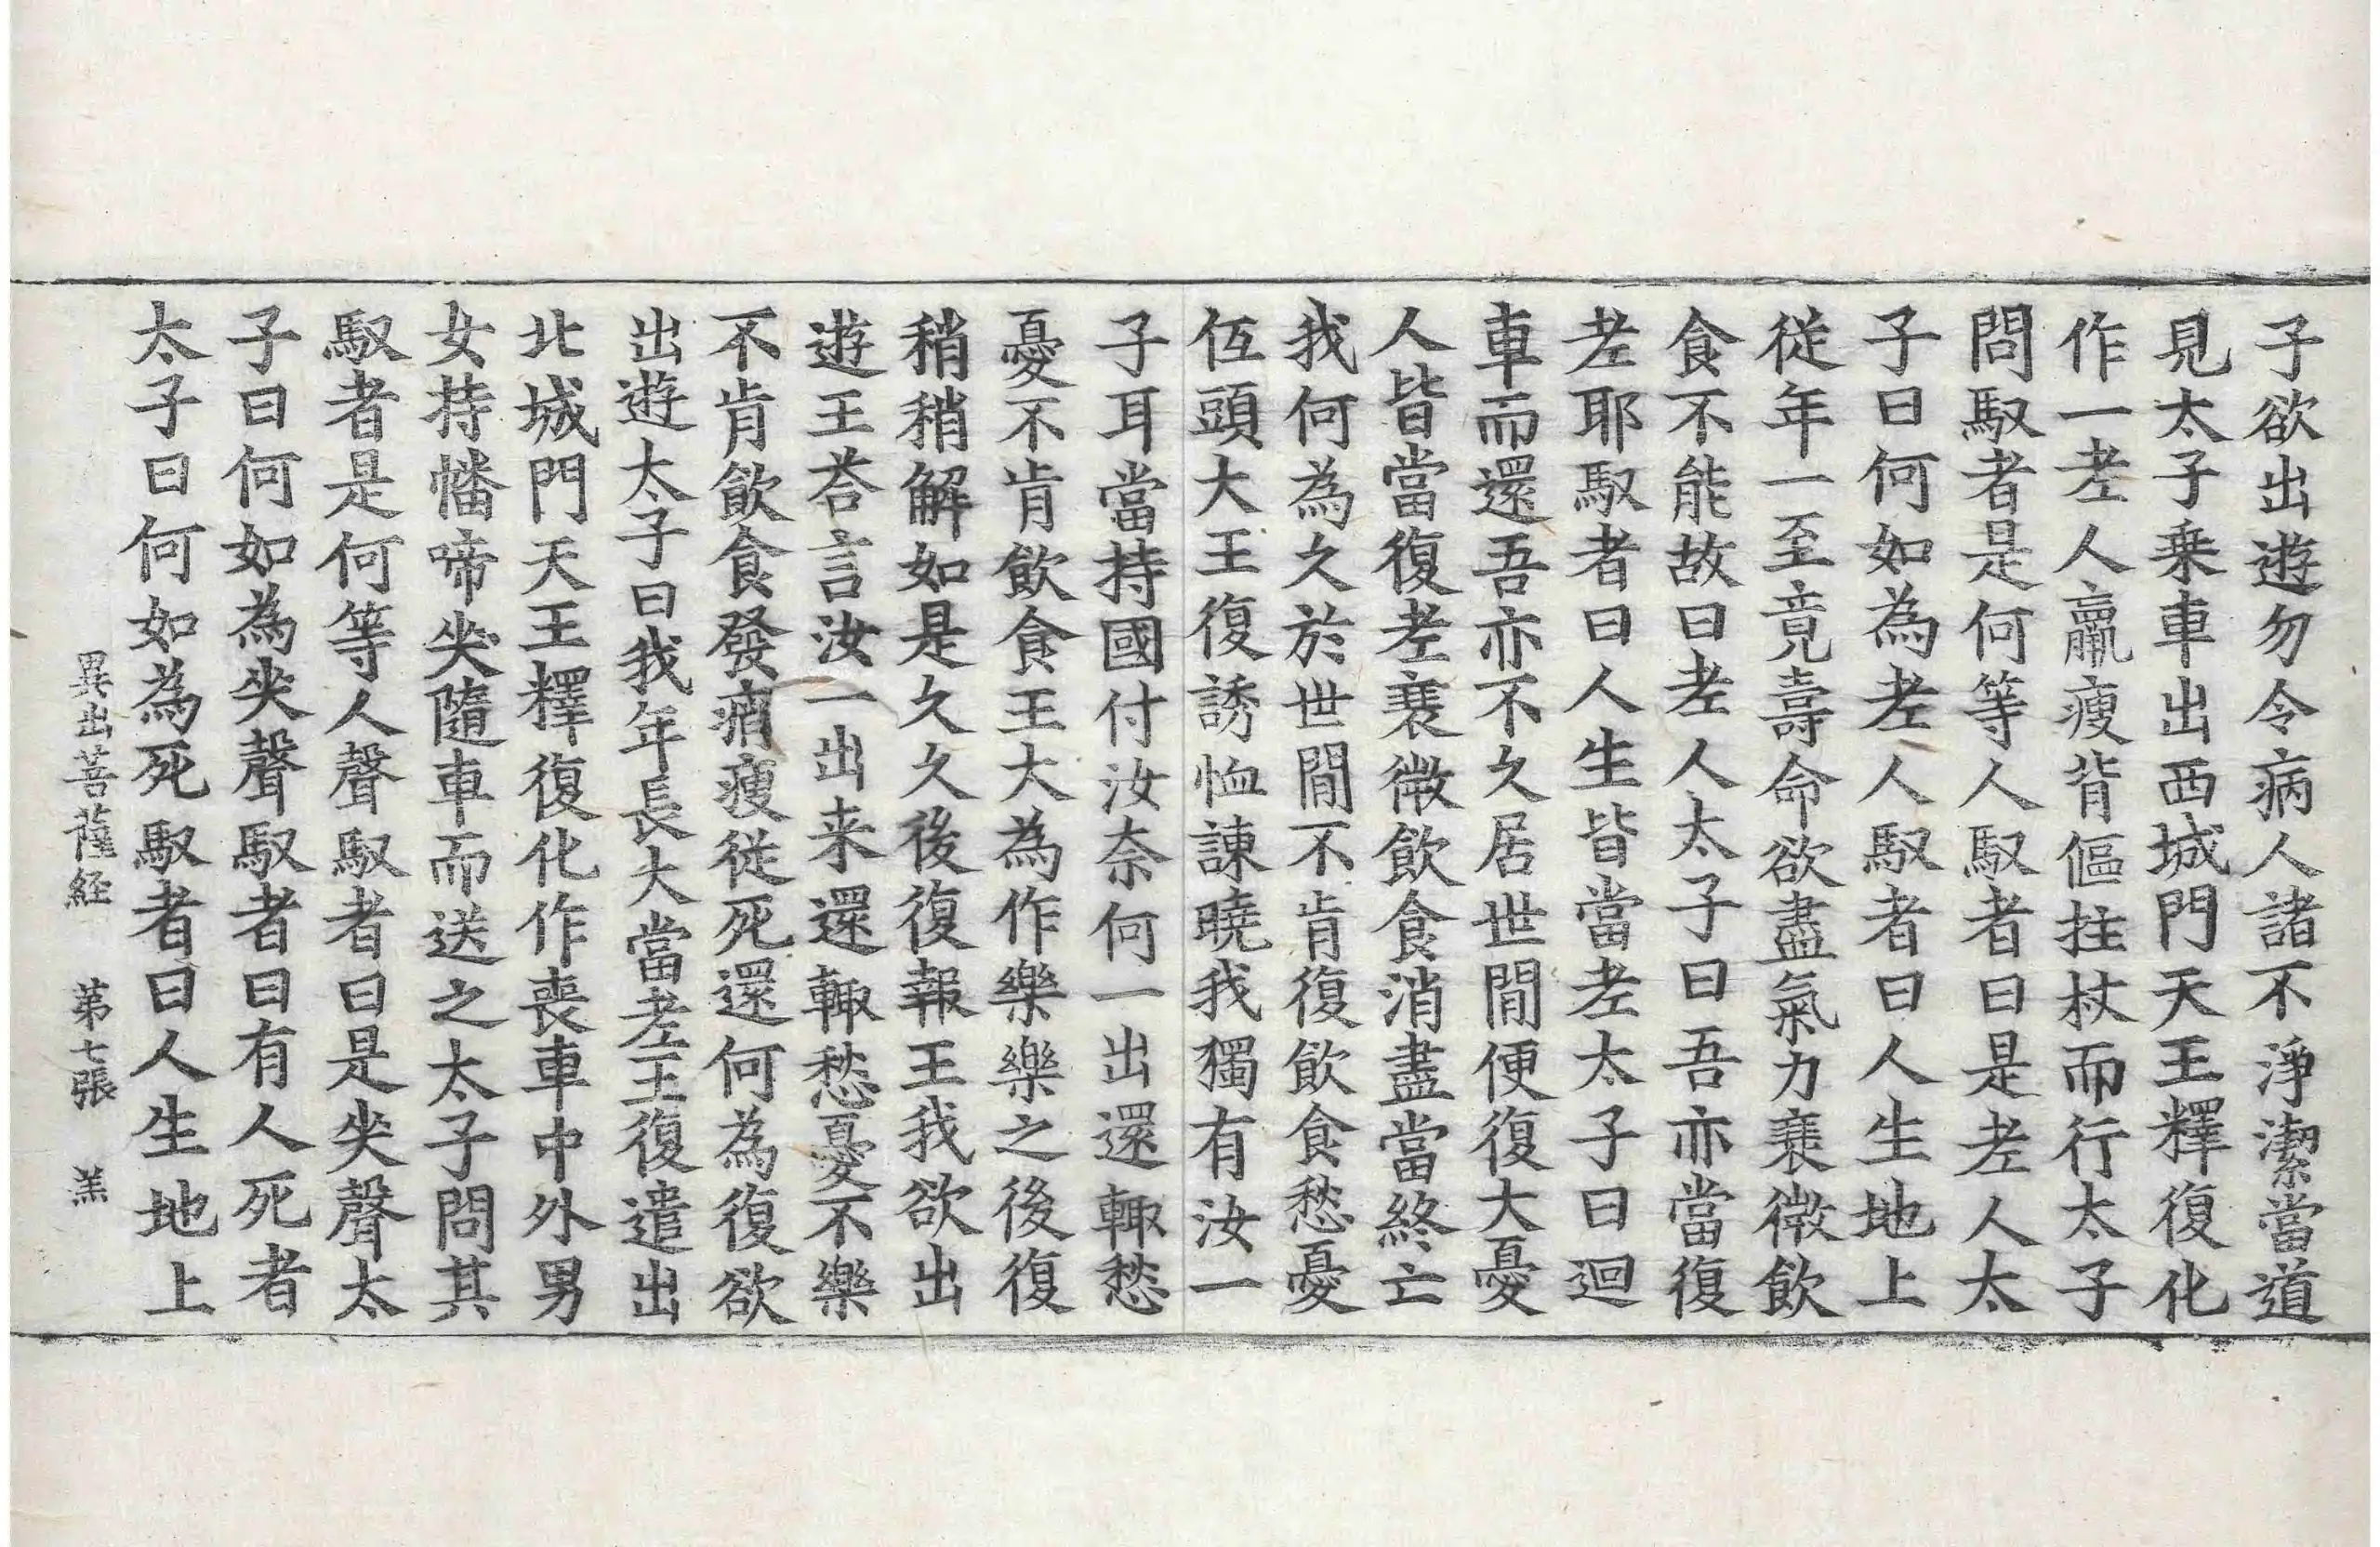 子欲出遊勿令病人諸不淨潔當道
見太子乗車出西城門天王釋復化
作一老人羸瘦背傴拄杖而行太子
問馭者是何等人馭者曰是老人太
子曰何如為老人馭者曰人生地上
従年一至竟壽命欲盡氣力衰微飲
食不能故曰老人太子曰吾亦當復
老耶馭者曰人生皆當老太子曰迴
車而還吾亦不久居世間便復大憂
人皆當復老衰微飲食消盡當終亡
我何為久於世間不肯復飲食愁憂
伍頭大王復誘恤諫曉我獨有汝一
子耳當持國付汝奈何一出還輙愁
憂不肯飲食王大為作樂樂之後復
稍稍解如是久久後復報王我欲出
遊王荅言汝一出来還輙愁憂不樂
不肯飲食發痟瘦従死還何為復欲
出遊太子曰我年長大當老王復遣出
北城門天王釋復化作喪車中外男
女持幡啼哭隨車而送之太子問其
馭者是何等人聲馭者曰是哭聲太
子曰何如為哭聲馭者曰有人死者
太子曰何如為死馭者曰人生地上
異出菩薩経　第七張　羔